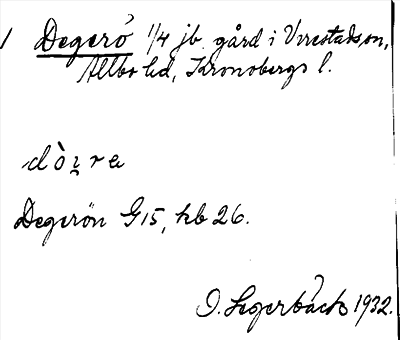 1 Degerö 1/4 jb. gård i Virestads sn,
Allbo hd, Kronobergs l.
Degerön G15, kb 26.
O. Segerbäck 1932.